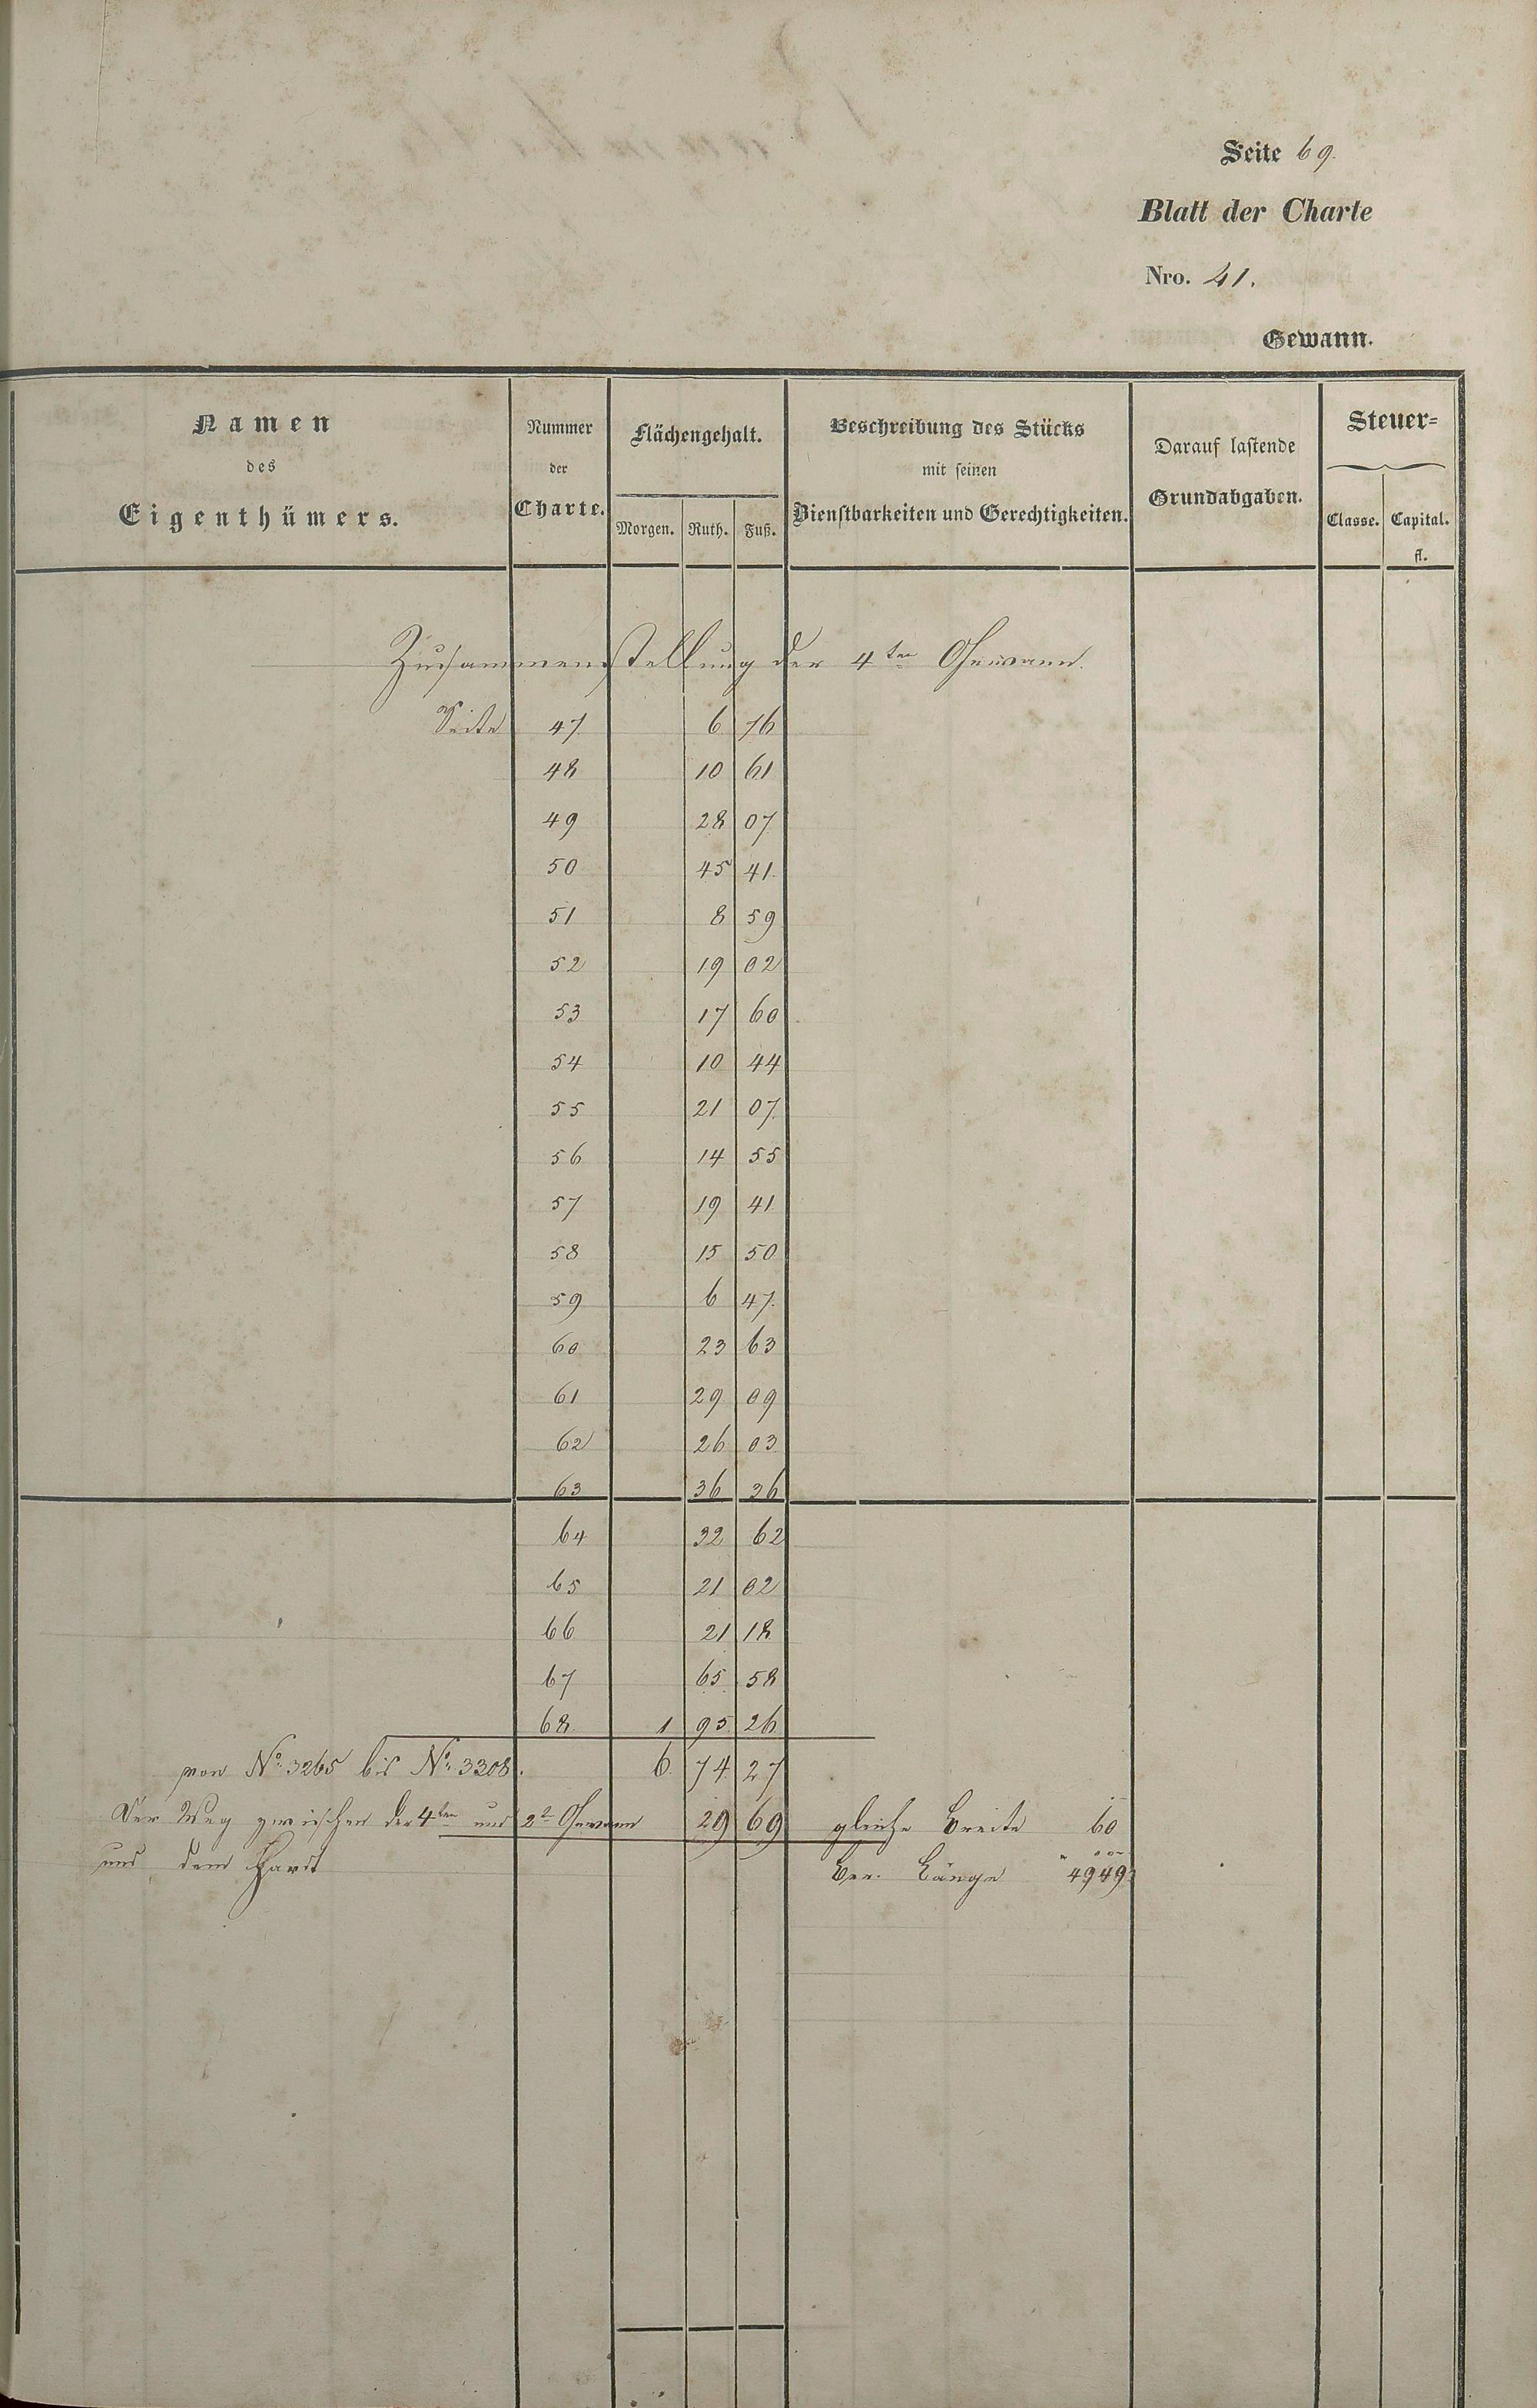 Seite 69.
Blatt der Charte
Nro. 41.
Gewann.
Namen des Eigenthümers.
Nummer der Charte.
Flächengehalt.
Morgen. Ruth. Fuß.
Beschreibung des Stücks mit seinen Dienstbarkeiten und Gerechtigkeiten.
Darauf lastende Grundabgaben.
Steuer=
Classe. Capital.
fl.
Zusammenstellung der 4ten Gewann.
Seite 47 6 76
48 10 61
49 28 07
50 45 41
51 8 59
52 19 02
53 17 60
54 10 44
55 21 07
56 14 55
57 19 41
58 15 50
59 6 47
60 23 63
61 29 09
62 26 03
63 36 36
64 32 62
65 21 02
66 21 18
67 65 58
68 1 95 26
von No. 3265 bis No. 3308. 6 74 27
Der Weg zwischen der 4ten und 2t Gewann 29 69 gleiche Breite 60
und dem Hardt Ber. Länge 4949